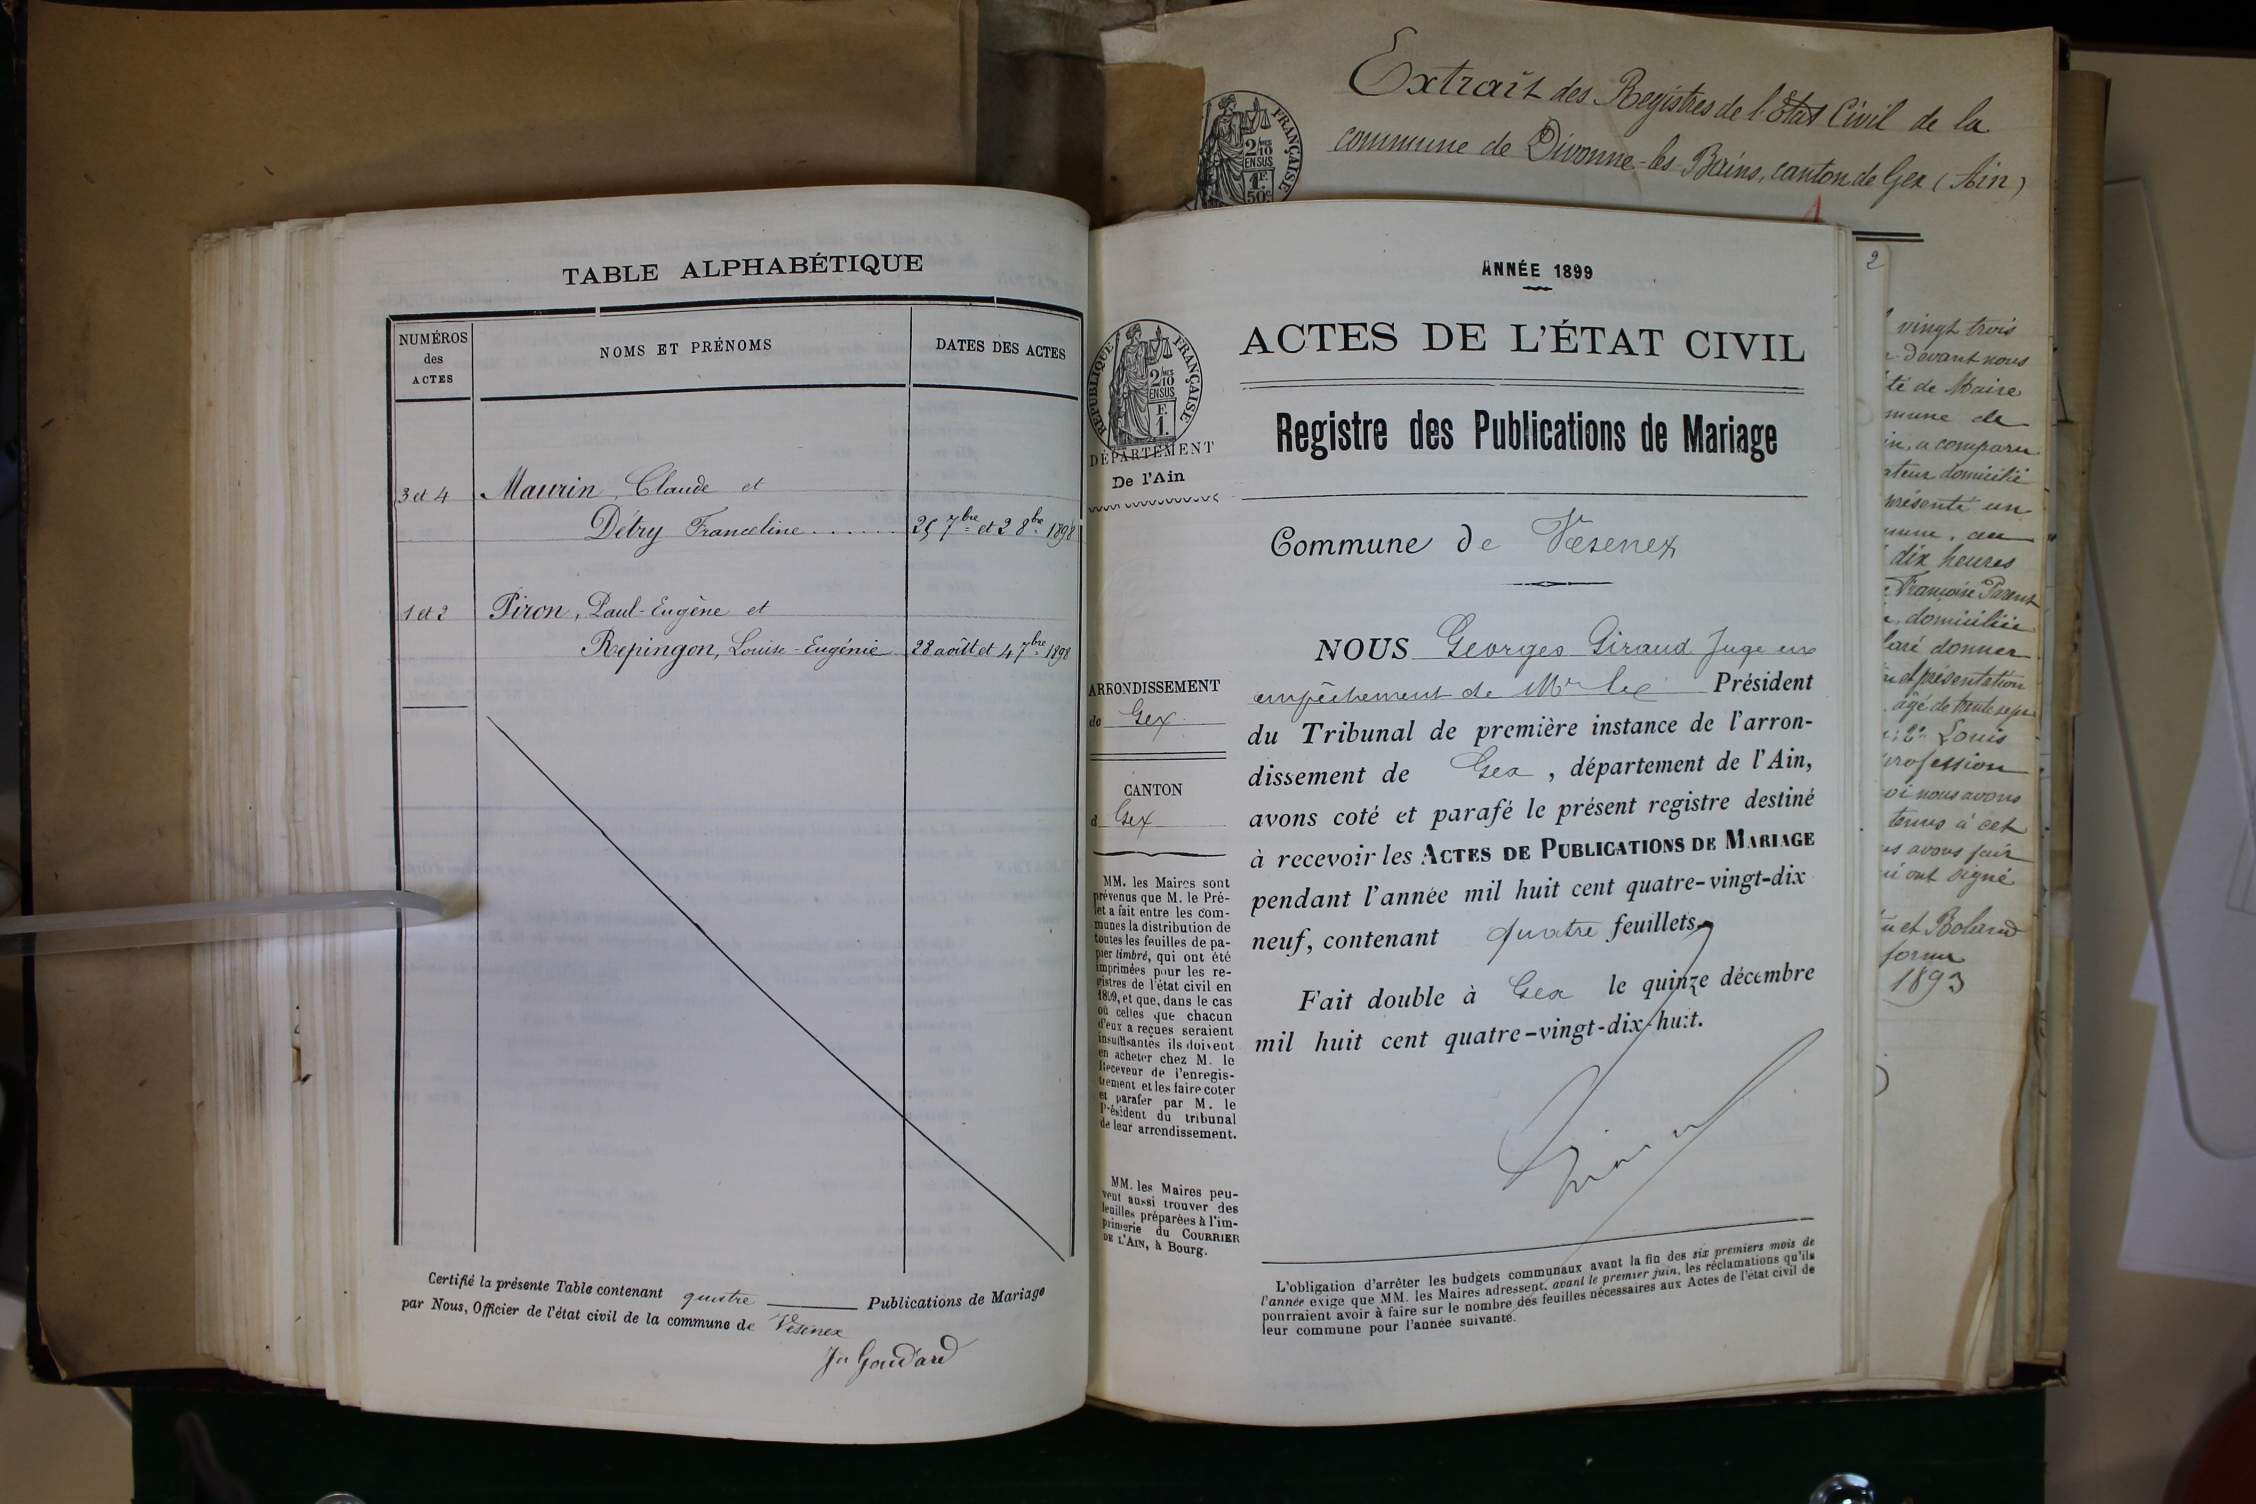 TABLE ALPHABÉTIQUE
NUMÉROS
des
ACTES
NOMS ET PRÉNOMS
DATES DES ACTES
3 et 4 Maurin, Claude et
Détry Franceline 25 7bre et 2 8bre 1898
1 et 2 Piron, Paul-Eugène et
Repingon, Louise-Eugénie 28 août et 4 7bre 1898
Certifié la présente Table contenant quatre Publications de Mariage
par Nous, Officier de l'état civil de la commune de Vésenex
Goudard
Extrait des Registres de l'Etat Civil de la
commune de Divonne-les-Bains, canton de Gex (Ain)
FRANÇAISE
2/10
EN SUS
1F.
50c
ANNÉE 1899
ACTES DE L'ÉTAT CIVIL
Registre des Publications de Mariage
RÉPUBLIQUE FRANÇAISE
2/10
EN SUS
F.
1.
DÉPARTEMENT
De l'Ain
ARRONDISSEMENT
de Gex
CANTON
d Gex
MM. les Maires sont
prévenus que M. le Pré-
fet a fait entre les com-
munes la distribution de
toutes les feuilles de pa-
pier timbré, qui ont été
imprimées pour les re-
gistres de l'état civil en
1899, et que, dans le cas
où celles que chacun
d'eux a reçues seraient
insuffisantes ils doivent
en acheter chez M. le
Receveur de l'enregis-
trement et les faire coter
et parafer par M. le
Président du tribunal
de leur arrondissement.
MM. les Maires peu-
vent aussi trouver des
feuilles préparées à l'im-
primerie du COURRIER
DE L'AIN, à Bourg.
Commune de Vésenex
NOUS Georges Giraud Juge en
empêchement de Mr le Président
du Tribunal de première instance de l'arron-
dissement de Gex, département de l'Ain,
avons coté et parafé le présent registre destiné
à recevoir les ACTES DE PUBLICATIONS DE MARIAGE
pendant l'année mil huit cent quatre-vingt-dix
neuf, contenant quatre feuillets.
Fait double à Gex le quinze décembre
mil huit cent quatre-vingt-dix-huit.
L'obligation d'arrêter les budgets communaux avant la fin des six premiers mois de
l'année exige que MM. les Maires adressent, avant le premier juin, les réclamations qu'ils
pourraient avoir à faire sur le nombre des feuilles nécessaires aux Actes de l'état civil de
leur commune pour l'année suivante.
2
vingt trois
devant nous
té de Maire
mune de
in, a comparu
ateur domicilié
présenté un
mune, au
dix heures
Françoise Parent
domiciliée
laré donner
et présentation
âgé de trente sept
2° Louis
profession
oi nous avons
tenus à cet
us avons fait
ui ont signé
et Boland
forme
1893